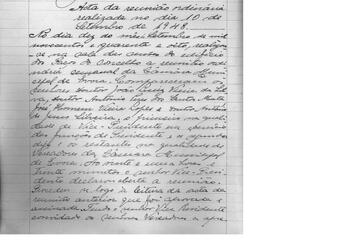 Acta da reunião ordinária
realizada no dia 10 de
Setembro de 1948.
No dia dez do mês Setembro de mil
novecentos e quarenta e oito, realizou-
se na sala das do edifício
dos Paços do Concelho a reunião ordi-
nária semanal da Câmara Muni-
cipal de Évora. Compareceram os
senhores Doutor João Vieira da Sil-
va, Doutor António
José Vieira Lopes e Doutor António
de Jesus Silveira, o primeiro na quali-
dade de Vice-Presidente
funções de Presidente e o segundo
e os restantes na qualidade de
Vereadores da Câmara Municipal
de Évora. Às e uma horas e
trinta minutos o senhor Vice-Presi-
dente declarou aberta a reunião.
logo à leitura da acta da
reunião anterior que foi aprovada e
assinada. o senhor Vice-Presidente
os senhores Vereadores a apre-